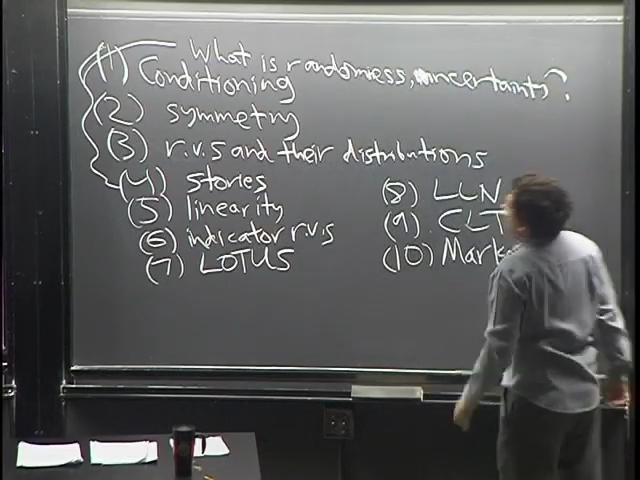 What is randomness, uncertainty?
(1) Conditioning
(2) symmetry
(3) r.v.s and their distributions
(4) stories
(5) linearity
(6) indicator r.v.s
(7) LOTUS
(8) LLN
(9) CLT
(10) Mark